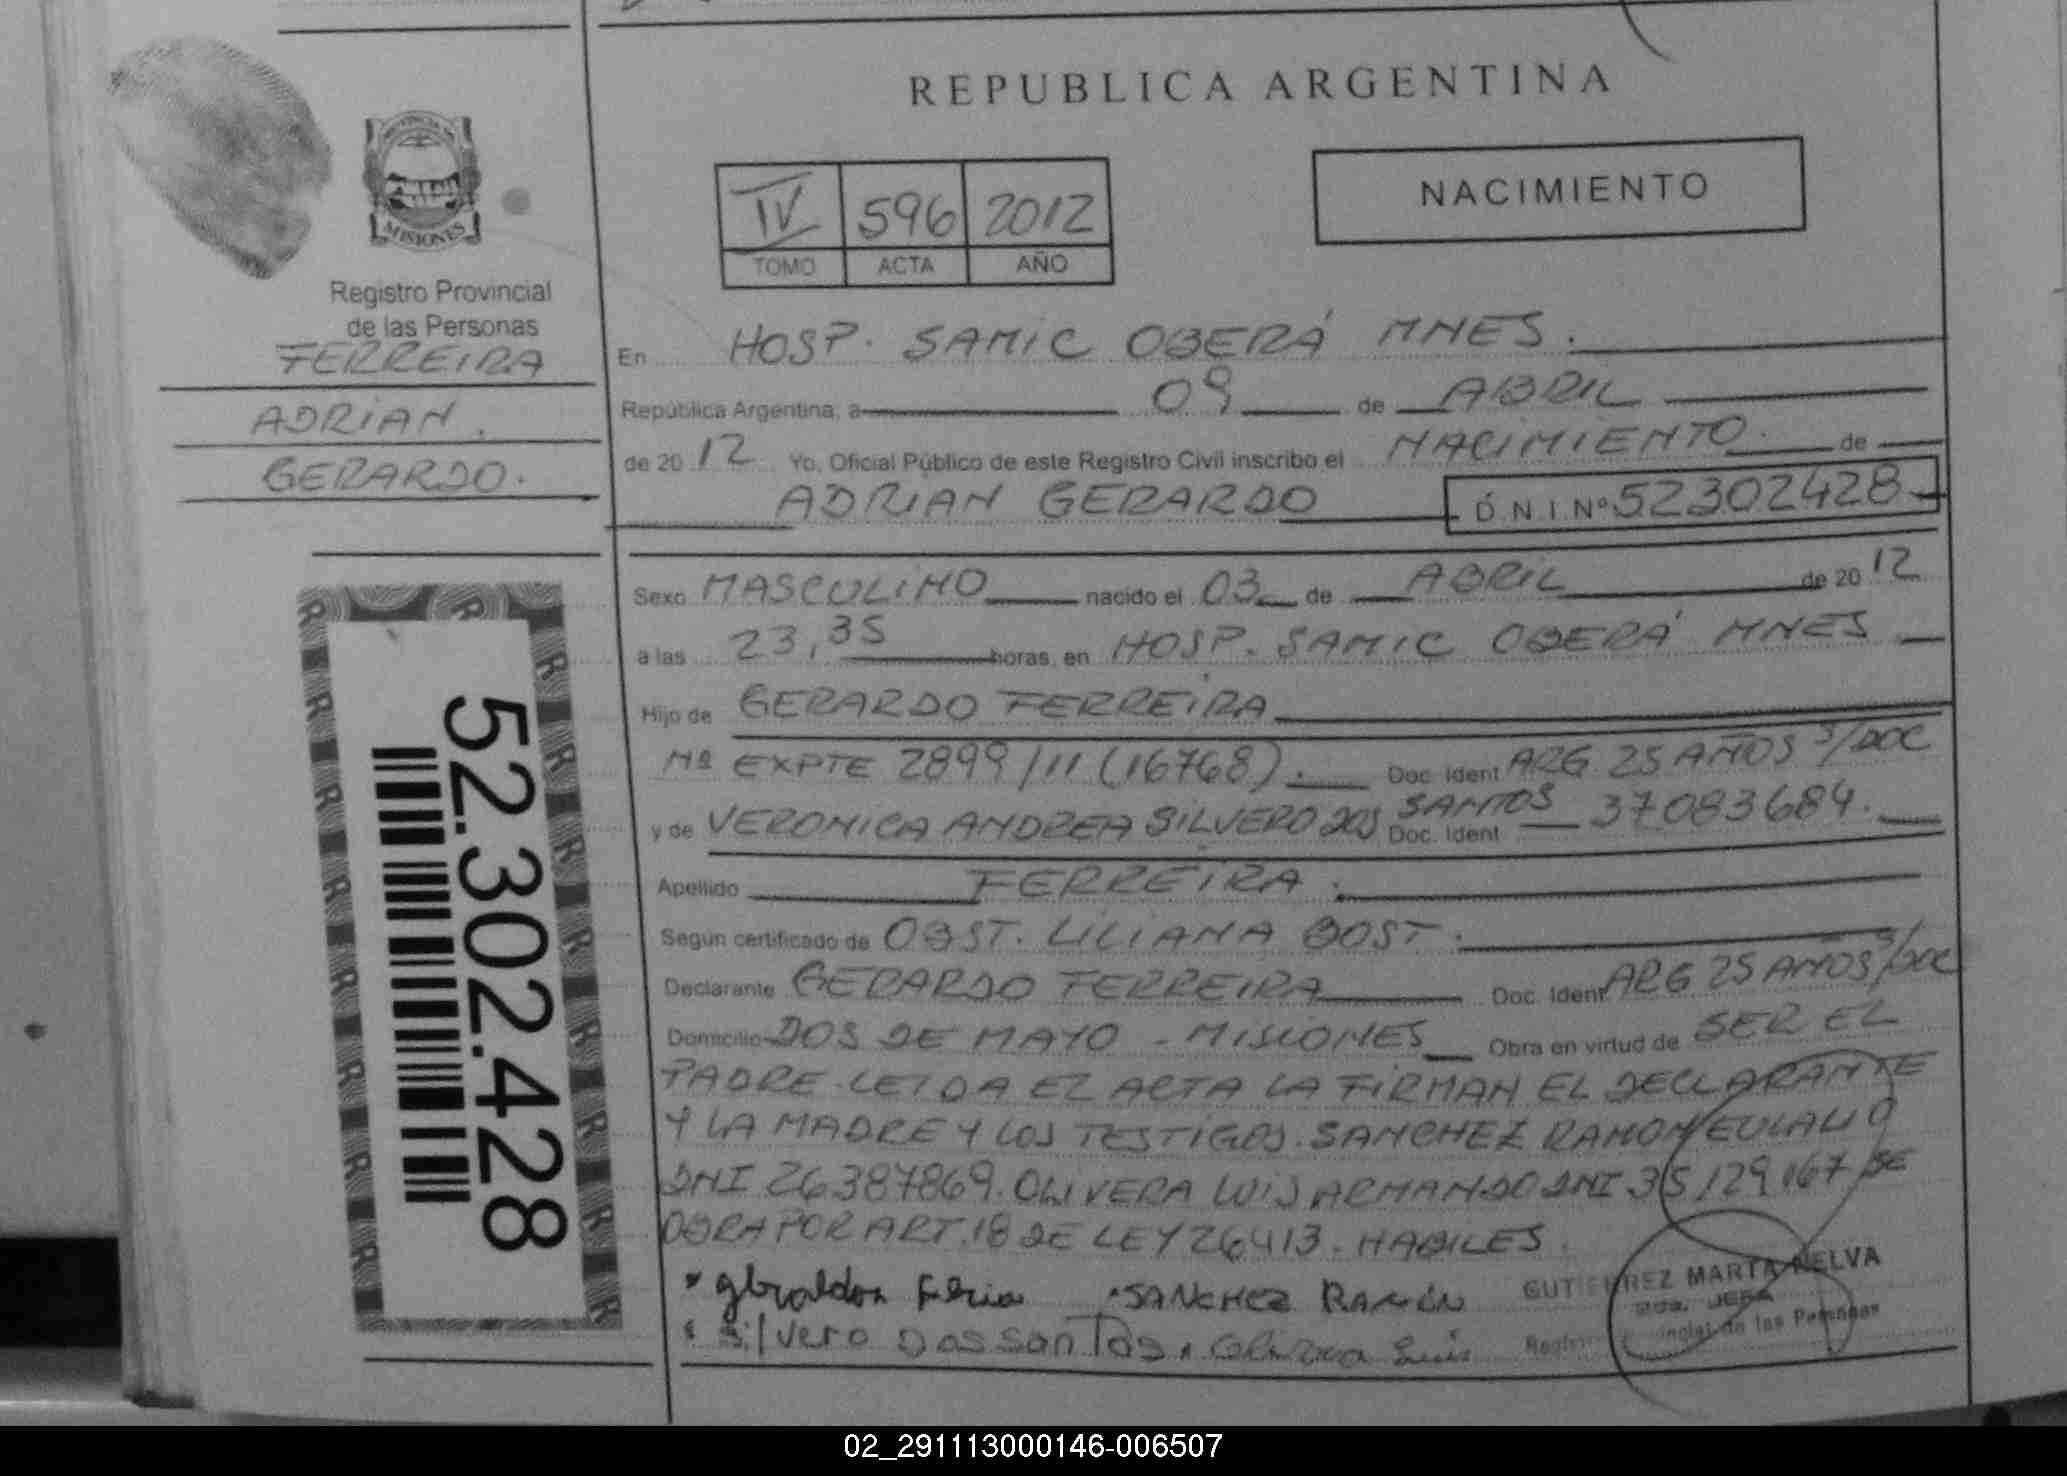 REPUBLICA ARGENTINA
NACIMIENTO
IV 596 2012
TOMO ACTA AÑO
PROVINCIA DE
MISIONES
Registro Provincial
de las Personas
FERREIRA
ADRIAN.
GERARDO.
52.302.428
En HOSP. SAMIC OBERÁ MNES.
República Argentina, a 09 de ABRIL
de 2012 Yo, Oficial Público de este Registro Civil inscribo el NACIMIENTO. de
ADRIAN GERARDO D.N.I.Nº 52302428
Sexo MASCULINO nacido el 03 de ABRIL de 2012
a las 23,35 horas, en HOSP. SAMIC OBERÁ MNES
Hijo de GERARDO FERREIRA
Nº EXPTE 2899/11 (16768). Doc. Ident ARG 25 AÑOS S/DOC
y de VERONICA ANDREA SILVERO DOS SANTOS Doc. Ident 37083684.
Apellido FERREIRA.
Según certificado de OBST. LILIANA BOST.
Declarante GERARDO FERREIRA Doc. Ident ARG 25 AÑOS S/DOC
Domicilio DOS DE MAYO - MISIONES Obra en virtud de SER EL
PADRE. LEIDA EL ACTA LA FIRMAN EL DECLARANTE
Y LA MADRE Y LOS TESTIGOS. SANCHEZ RAMON EULALIO
DNI 26387869. OLIVERA LUIS ARMANDO DNI 35129167 SE
OBRA POR ART. 18 DE LEY 26413. HABILES.
SANCHEZ RAMÓN
Silvero Dos santos
GUTIERREZ MARTA NELVA
JEFA
de las Personas
02_291113000146-006507